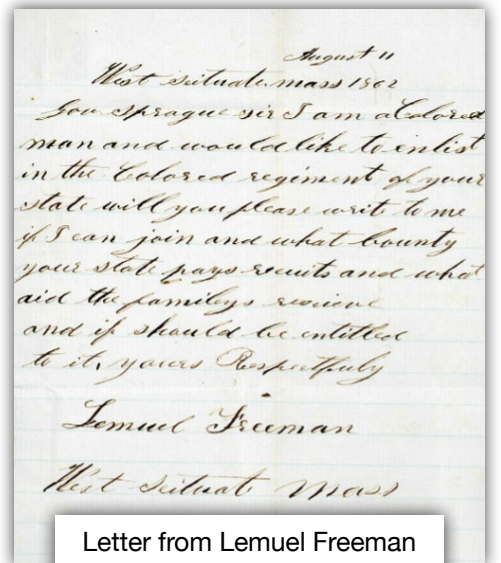 August 11
West Scituate mass 1862
Gov Sprague sir I am a Colored
man and would like to enlist
in the Colored regiment of your
state will you please write to me
if I can join and what bounty
your state pays recuits and what
aid the familys recieve
and if should be entitled
to it, yours Respectfuly
Lemuel Freeman
West Scituate Mass
Letter from Lemuel Freeman